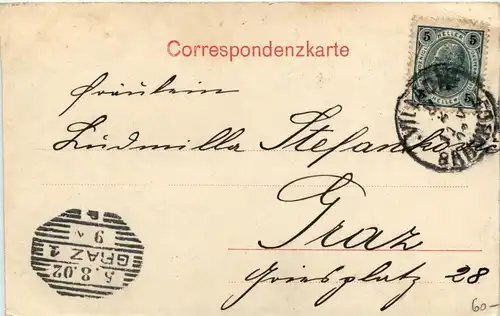 Correspondenzkarte
5 5
HELLER
5 5
Fräulein
Ludmilla Stefan
Graz
Griesplatz 28
5.8.02
9
GRAZ 1
60-